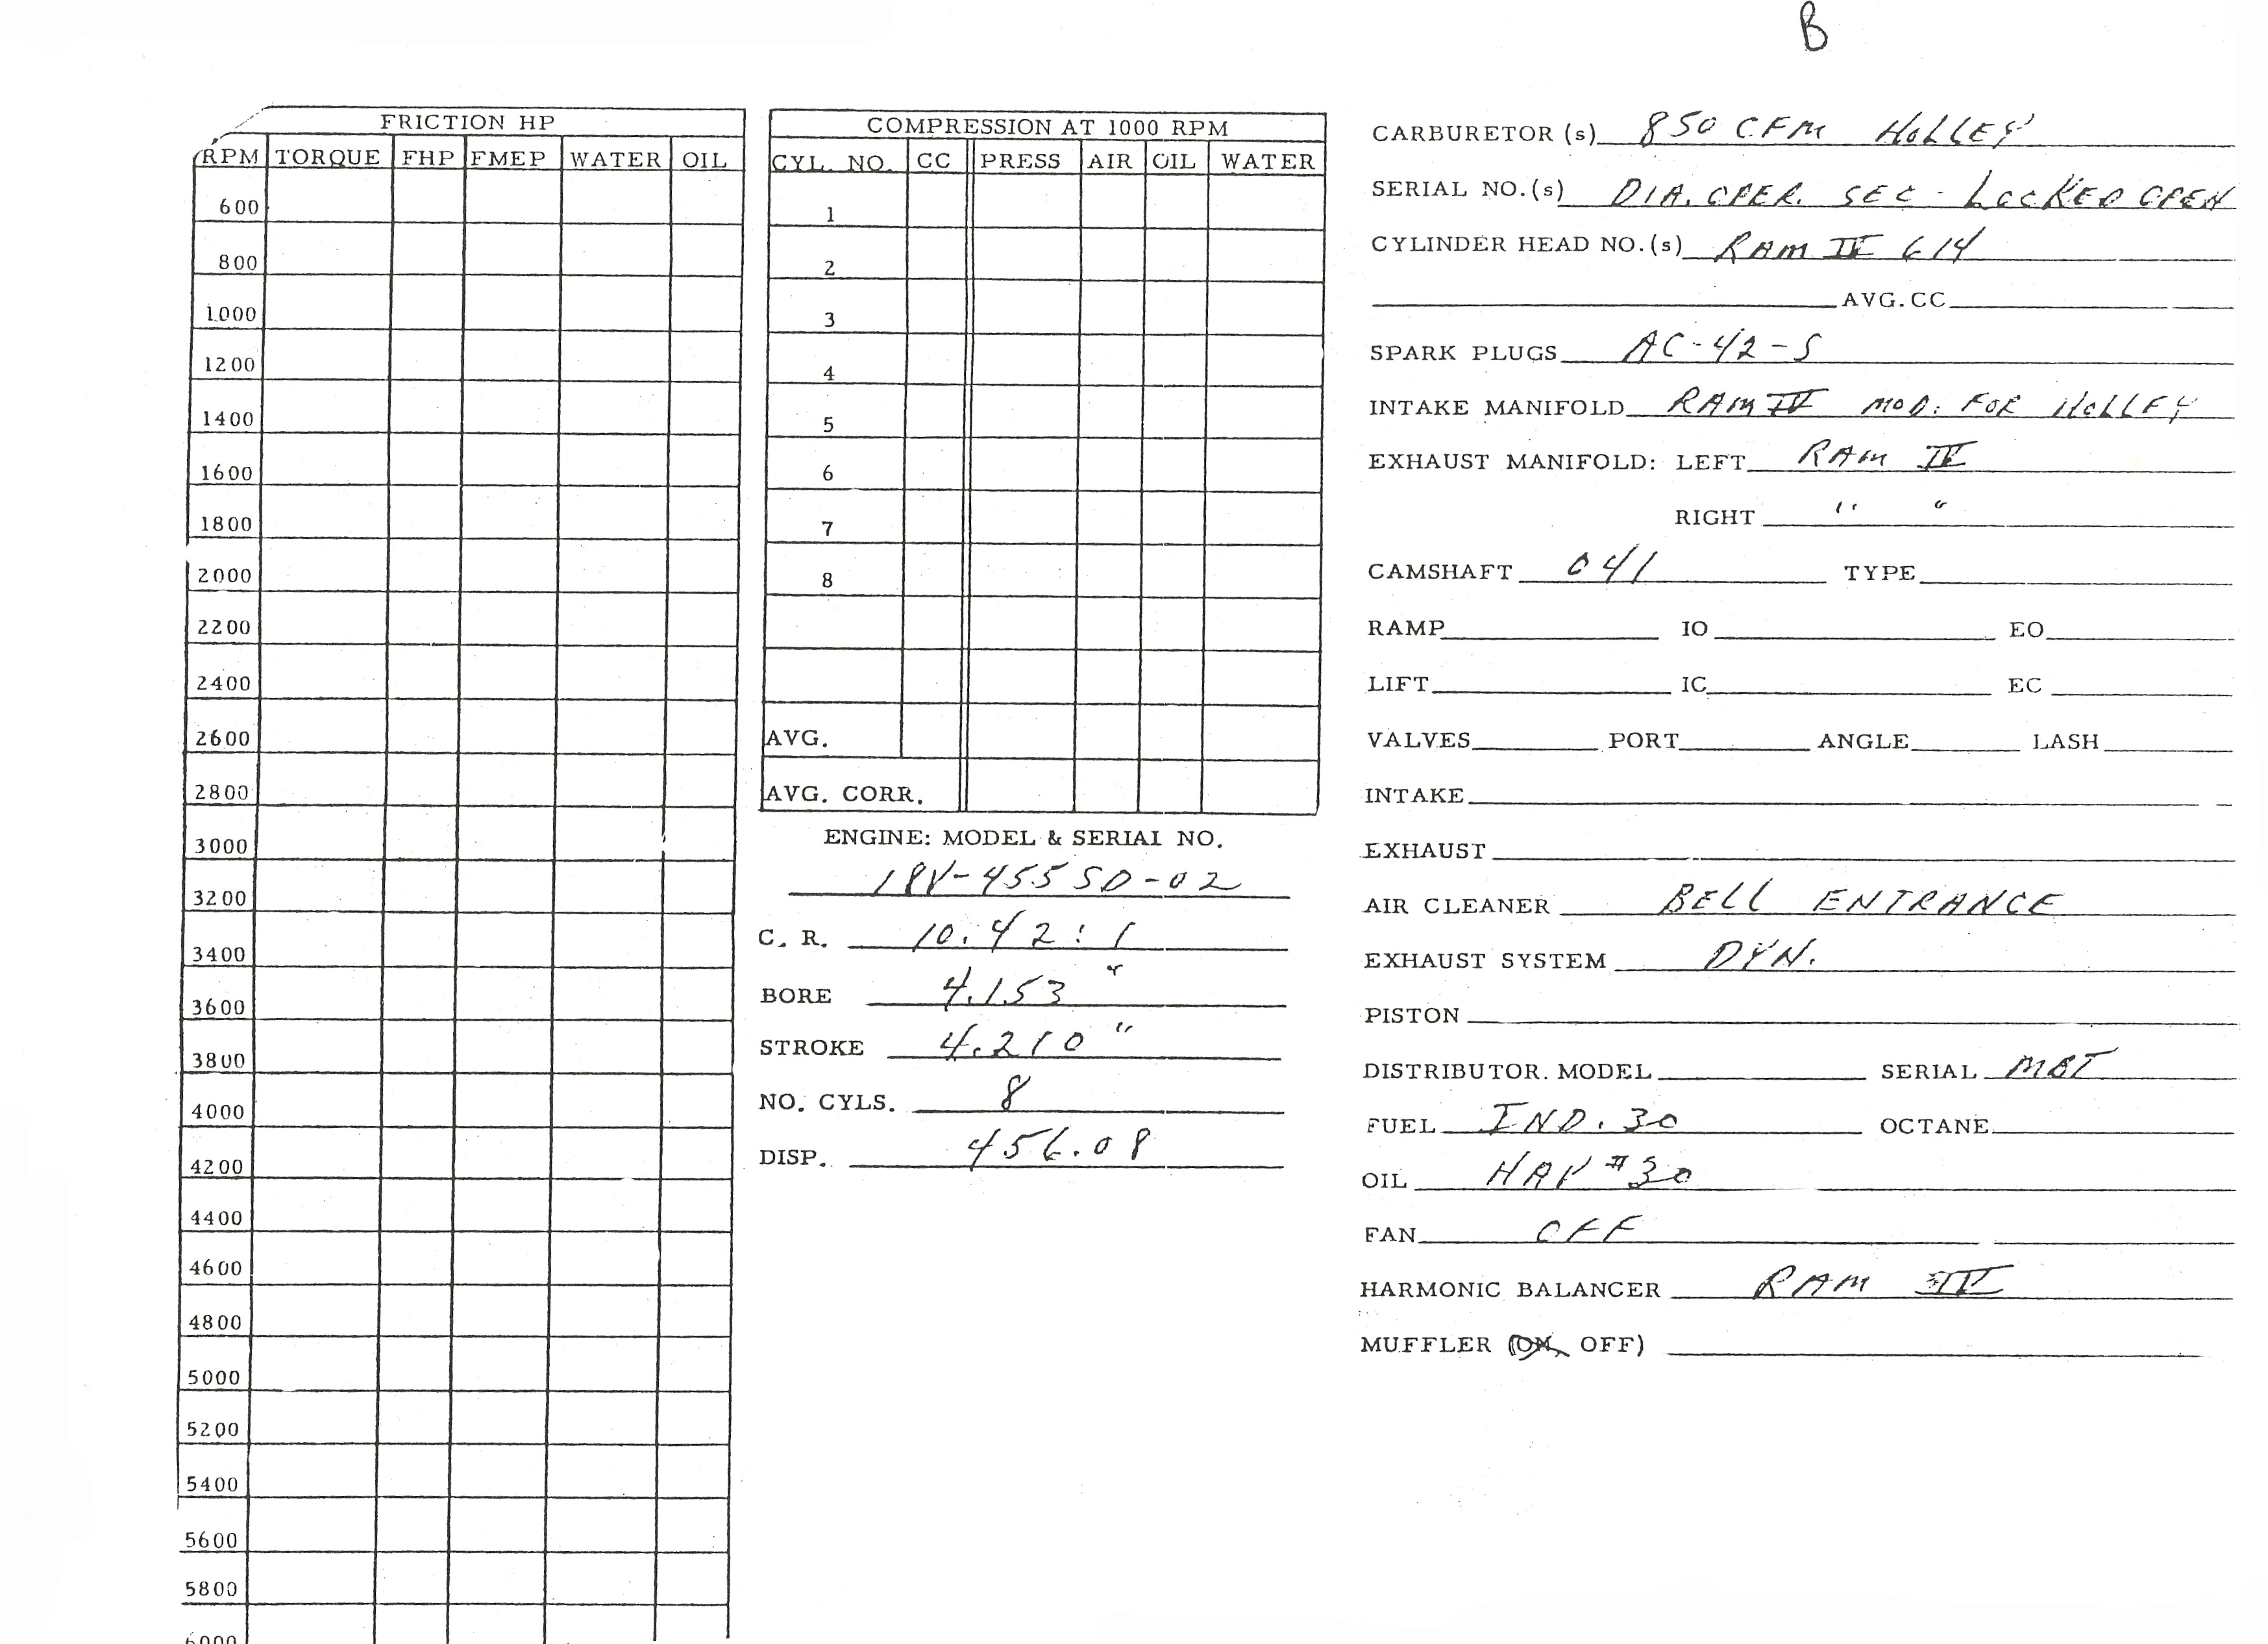 B
FRICTION HP
RPM TORQUE FHP FMEP WATER OIL
600
800
1000
1200
1400
1600
1800
2000
2200
2400
2600
2800
3000
3200
3400
3600
3800
4000
4200
4400
4600
4800
5000
5200
5400
5600
5800
6000
COMPRESSION AT 1000 RPM
CYL. NO. CC PRESS AIR OIL WATER
1
2
3
4
5
6
7
8
AVG.
AVG. CORR.
ENGINE: MODEL & SERIAL NO.
18V-455 SD-02
C. R. 10.42:1
BORE 4.153"
STROKE 4.210"
NO. CYLS. 8
DISP. 456.08
CARBURETOR (s) 850 CFM HOLLEY
SERIAL NO.(s) DIA. OPER. SEC - LOCKED OPEN
CYLINDER HEAD NO.(s) RAM IV 614
AVG.CC
SPARK PLUGS AC-42-S
INTAKE MANIFOLD RAM IV MOD. FOR HOLLEY
EXHAUST MANIFOLD: LEFT RAM IV
RIGHT " "
CAMSHAFT 041 TYPE
RAMP IO EO
LIFT IC EC
VALVES PORT ANGLE LASH
INTAKE
EXHAUST
AIR CLEANER BELL ENTRANCE
EXHAUST SYSTEM DYN.
PISTON
DISTRIBUTOR. MODEL SERIAL MBT
FUEL IND. 30 OCTANE
OIL #30
FAN OFF
HARMONIC BALANCER RAM IV
MUFFLER (ON, OFF)